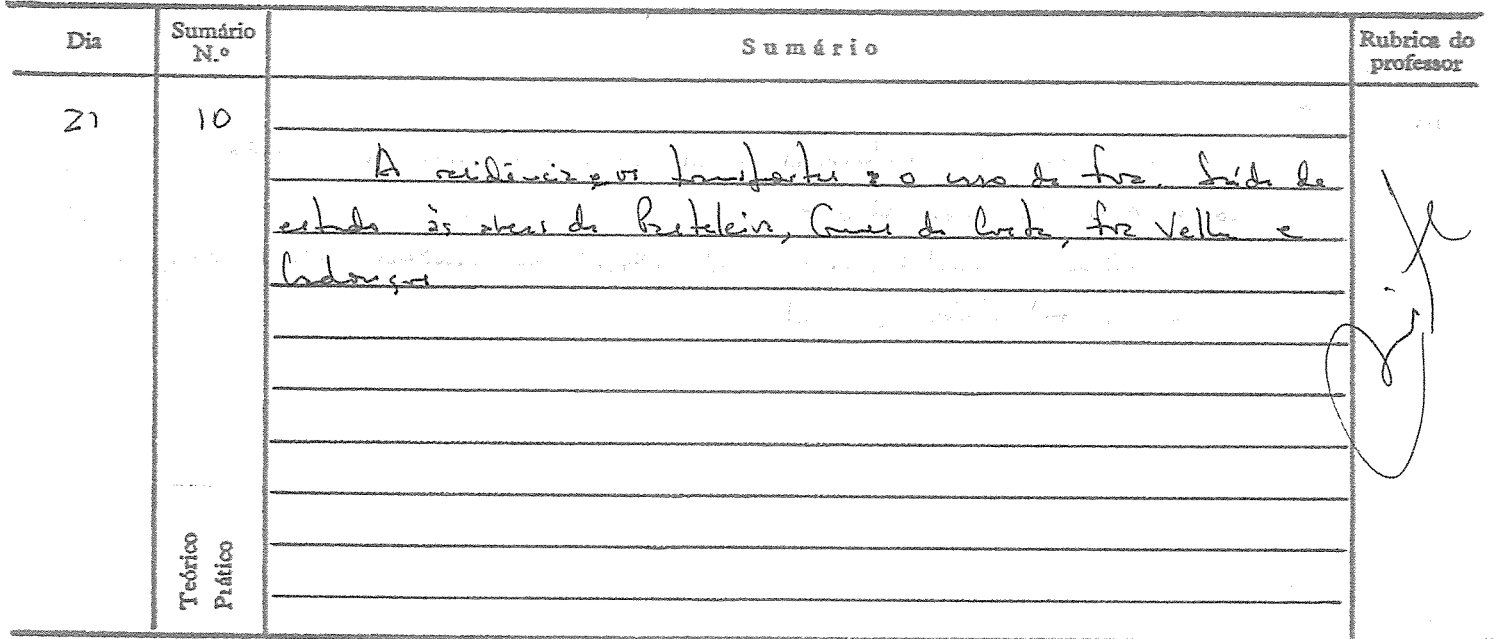 Dia Sumário N.º Sumário Rubrica do professor
21 10
A residência, os transportes e o uso da Foz. Saída de
estudo às áreas da Pasteleira, Gomes da Costa, Foz Velha e
Teórico
Prático